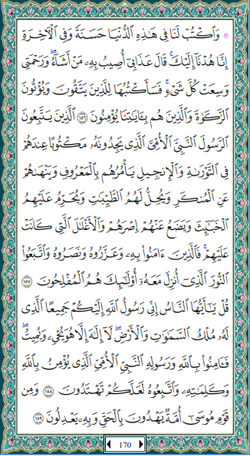 ۞ وَٱكْتُبْ لَنَا فِى هَٰذِهِ ٱلدُّنْيَا حَسَنَةً وَفِى ٱلْءَاخِرَةِ
إِنَّا هُدْنَآ إِلَيْكَ ۚ قَالَ عَذَابِىٓ أُصِيبُ بِهِۦ مَنْ أَشَآءُ ۖ وَرَحْمَتِى
وَسِعَتْ كُلَّ شَىْءٍ ۚ فَسَأَكْتُبُهَا لِلَّذِينَ يَتَّقُونَ وَيُؤْتُونَ
ٱلزَّكَوٰةَ وَٱلَّذِينَ هُم بِـَٔايَٰتِنَا يُؤْمِنُونَ ١٥٦ ٱلَّذِينَ يَتَّبِعُونَ
ٱلرَّسُولَ ٱلنَّبِىَّ ٱلْأُمِّىَّ ٱلَّذِى يَجِدُونَهُۥ مَكْتُوبًا عِندَهُمْ
فِى ٱلتَّوْرَىٰةِ وَٱلْإِنجِيلِ يَأْمُرُهُم بِٱلْمَعْرُوفِ وَيَنْهَىٰهُمْ
عَنِ ٱلْمُنكَرِ وَيُحِلُّ لَهُمُ ٱلطَّيِّبَٰتِ وَيُحَرِّمُ عَلَيْهِمُ
ٱلْخَبَٰٓئِثَ وَيَضَعُ عَنْهُمْ إِصْرَهُمْ وَٱلْأَغْلَٰلَ ٱلَّتِى كَانَتْ
عَلَيْهِمْ ۚ فَٱلَّذِينَ ءَامَنُوا۟ بِهِۦ وَعَزَّرُوهُ وَنَصَرُوهُ وَٱتَّبَعُوا۟
ٱلنُّورَ ٱلَّذِىٓ أُنزِلَ مَعَهُۥٓ ۙ أُو۟لَٰٓئِكَ هُمُ ٱلْمُفْلِحُونَ ١٥٧
قُلْ يَٰٓأَيُّهَا ٱلنَّاسُ إِنِّى رَسُولُ ٱللَّهِ إِلَيْكُمْ جَمِيعًا ٱلَّذِى
لَهُۥ مُلْكُ ٱلسَّمَٰوَٰتِ وَٱلْأَرْضِ ۖ لَآ إِلَٰهَ إِلَّا هُوَ يُحْىِۦ وَيُمِيتُ ۖ
فَـَٔامِنُوا۟ بِٱللَّهِ وَرَسُولِهِ ٱلنَّبِىِّ ٱلْأُمِّىِّ ٱلَّذِى يُؤْمِنُ بِٱللَّهِ
وَكَلِمَٰتِهِۦ وَٱتَّبِعُوهُ لَعَلَّكُمْ تَهْتَدُونَ ١٥٨ وَمِن
قَوْمِ مُوسَىٰٓ أُمَّةٌ يَهْدُونَ بِٱلْحَقِّ وَبِهِۦ يَعْدِلُونَ ١٥٩
170